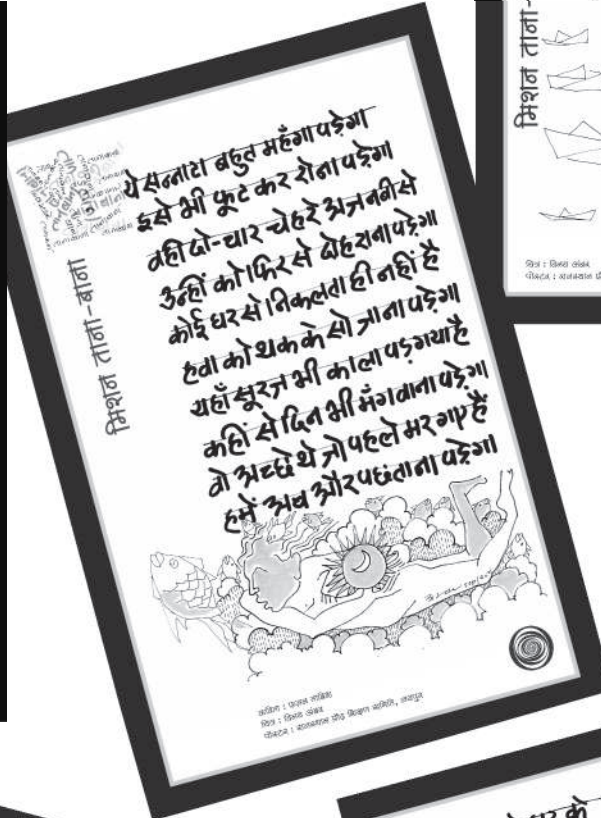 ये सन्नाटा बहुत महँगा पड़ेगा
इसे भी फूट कर रोना पड़ेगा
वही दो-चार चेहरे अजनबी से
उन्हीं को फिर से दोहराना पड़ेगा
कोई घर से निकलता ही नहीं है
हवा को थक के सो जाना पड़ेगा
यहाँ सूरज भी काला पड़ गया है
कहीं से दिन भी मँगवाना पड़ेगा
वो अच्छे थे जो पहले मर गए हैं
हमें अब और पछताना पड़ेगा
मिशन ताना-बाना
कविता : फ़ज़ल ताबिश
चित्र : विनय अंबर
पोस्टर : राजस्थान प्रौढ़ शिक्षण समिति, जयपुर
मिशन ताना-
चित्र : विनय अंबर
पोस्टर : राजस्थान प्रौ